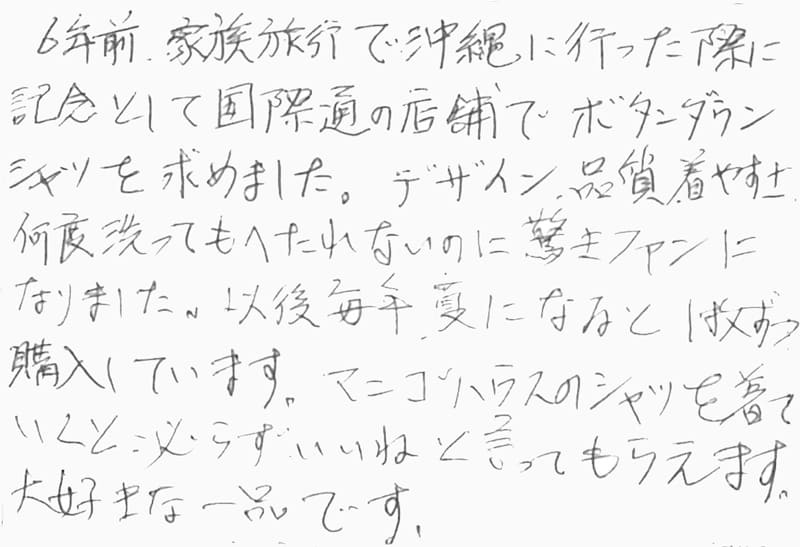 6年前、家族旅行で沖縄に行った際に
記念として国際通の店舗でボタンダウン
シャツを求めました。デザイン、品質、着やすさ、
何度洗ってもへたれないのに驚きファンに
なりました。以後毎年、夏になると1枚ずつ
購入しています。マンゴハウスのシャツを着て
いくと必らずいいねと言ってもらえます。
大好きな一品です。